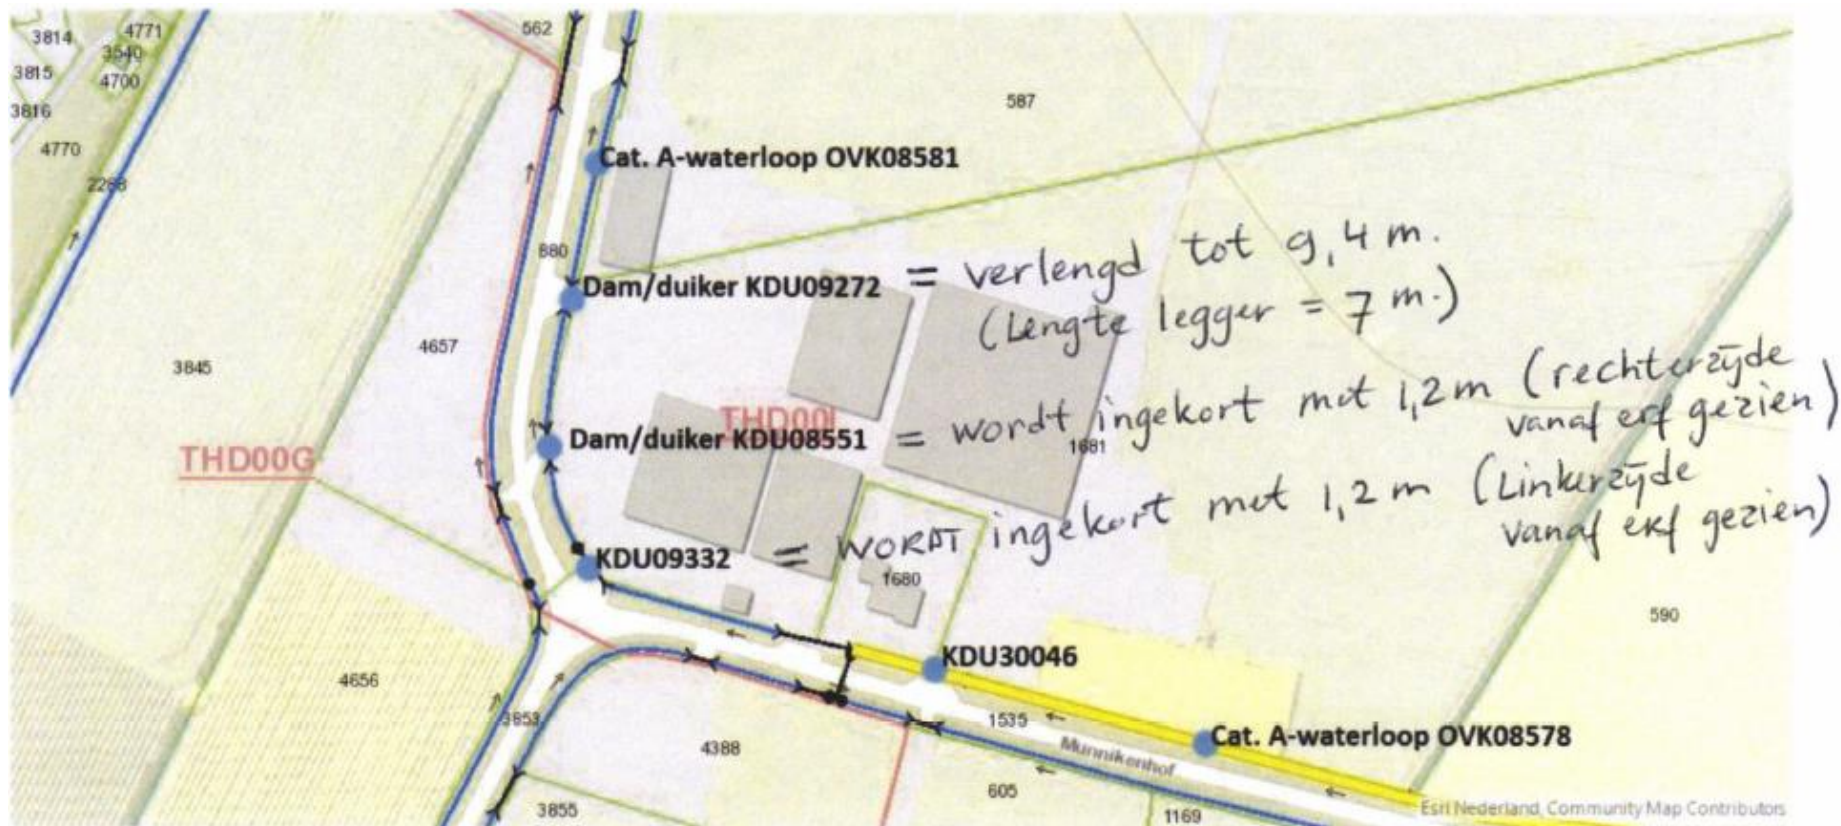 562
4771
3814
3540
3815
4700
3816
587
4770
2268
Cat. A-waterloop OVK08581
880
Dam/duiker KDU09272 = verlengd tot 9,4 m.
(Lengte legger = 7 m.)
4657
3845
THD00I
Dam/duiker KDU08551 = wordt ingekort met 1,2 m (rechterzijde
vanaf erf gezien)
1681
THD00G
KDU09332 = WORDT ingekort met 1,2 m (Linkerzijde
vanaf erf gezien)
1680
590
KDU30046
4656
3853
1535
4388
Cat. A-waterloop OVK08578
Munnikenhof
605
3855
1169
Esri Nederland, Community Map Contributors